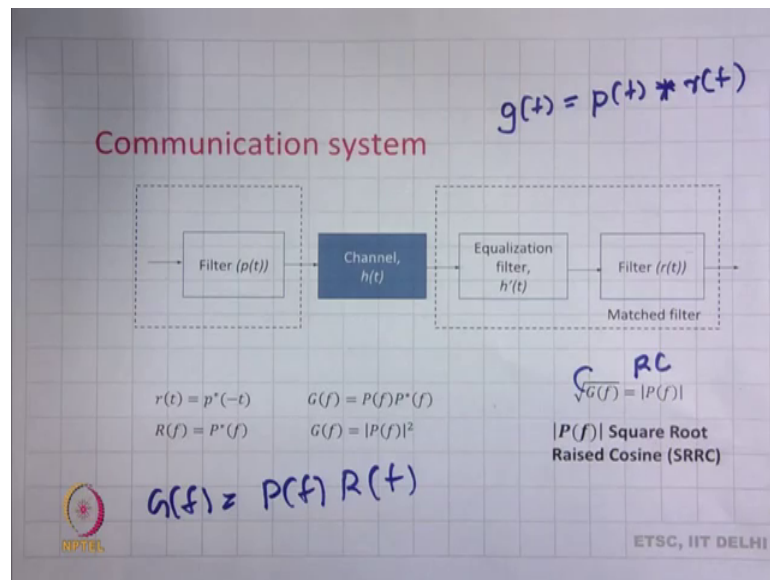 g(t) = p(t) * r(t)
Communication system
Filter (p(t))
Channel,
h(t)
Equalization
filter,
h'(t)
Filter (r(t))
Matched filter
RC
r(t) = p*(-t)
G(f) = P(f)P*(f)
√G(f) = |P(f)|
R(f) = P*(f)
G(f) = |P(f)|²
|P(f)| Square Root
Raised Cosine (SRRC)
G(f) = P(f) R(f)
NPTEL
ETSC, IIT DELHI